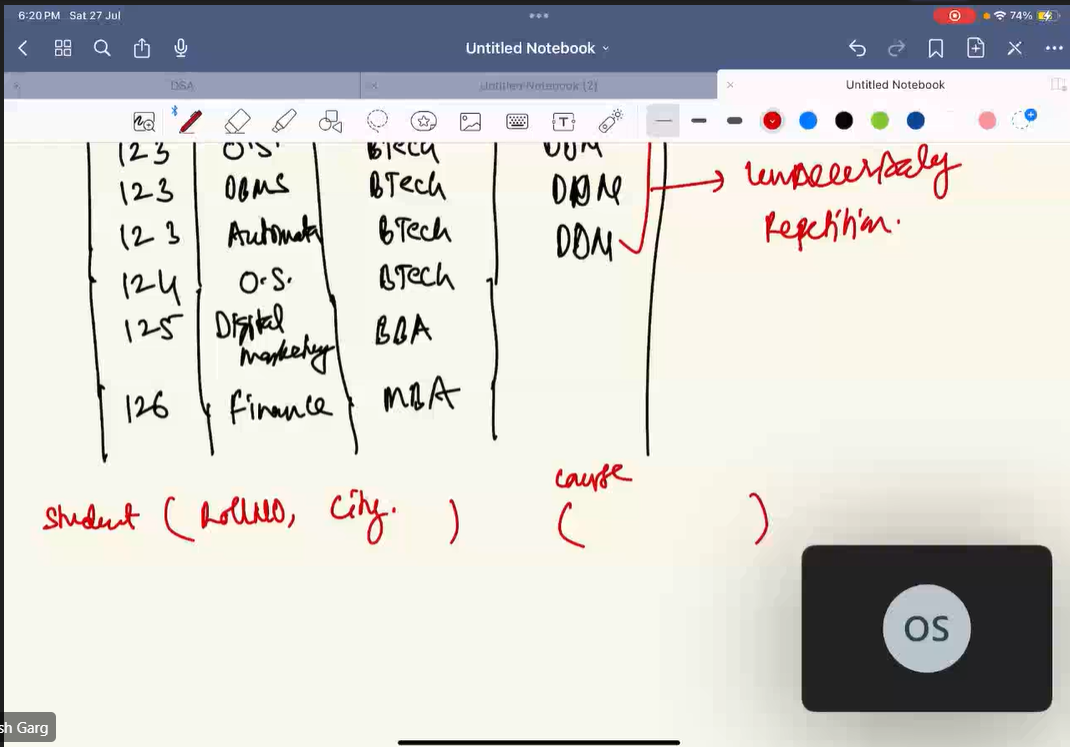 6:20 PM Sat 27 Jul
74%
Untitled Notebook
DSA
Untitled Notebook (2)
Untitled Notebook
123 O.S. BTech DDM
123 DBMS BTech DDM
Repetition.
123 Automata BTech DDM
124 O.S. BTech
125 Digital Marketing BBA
126 Finance MBA
Student ( RollNO, City. )
( )
OS
sh Garg